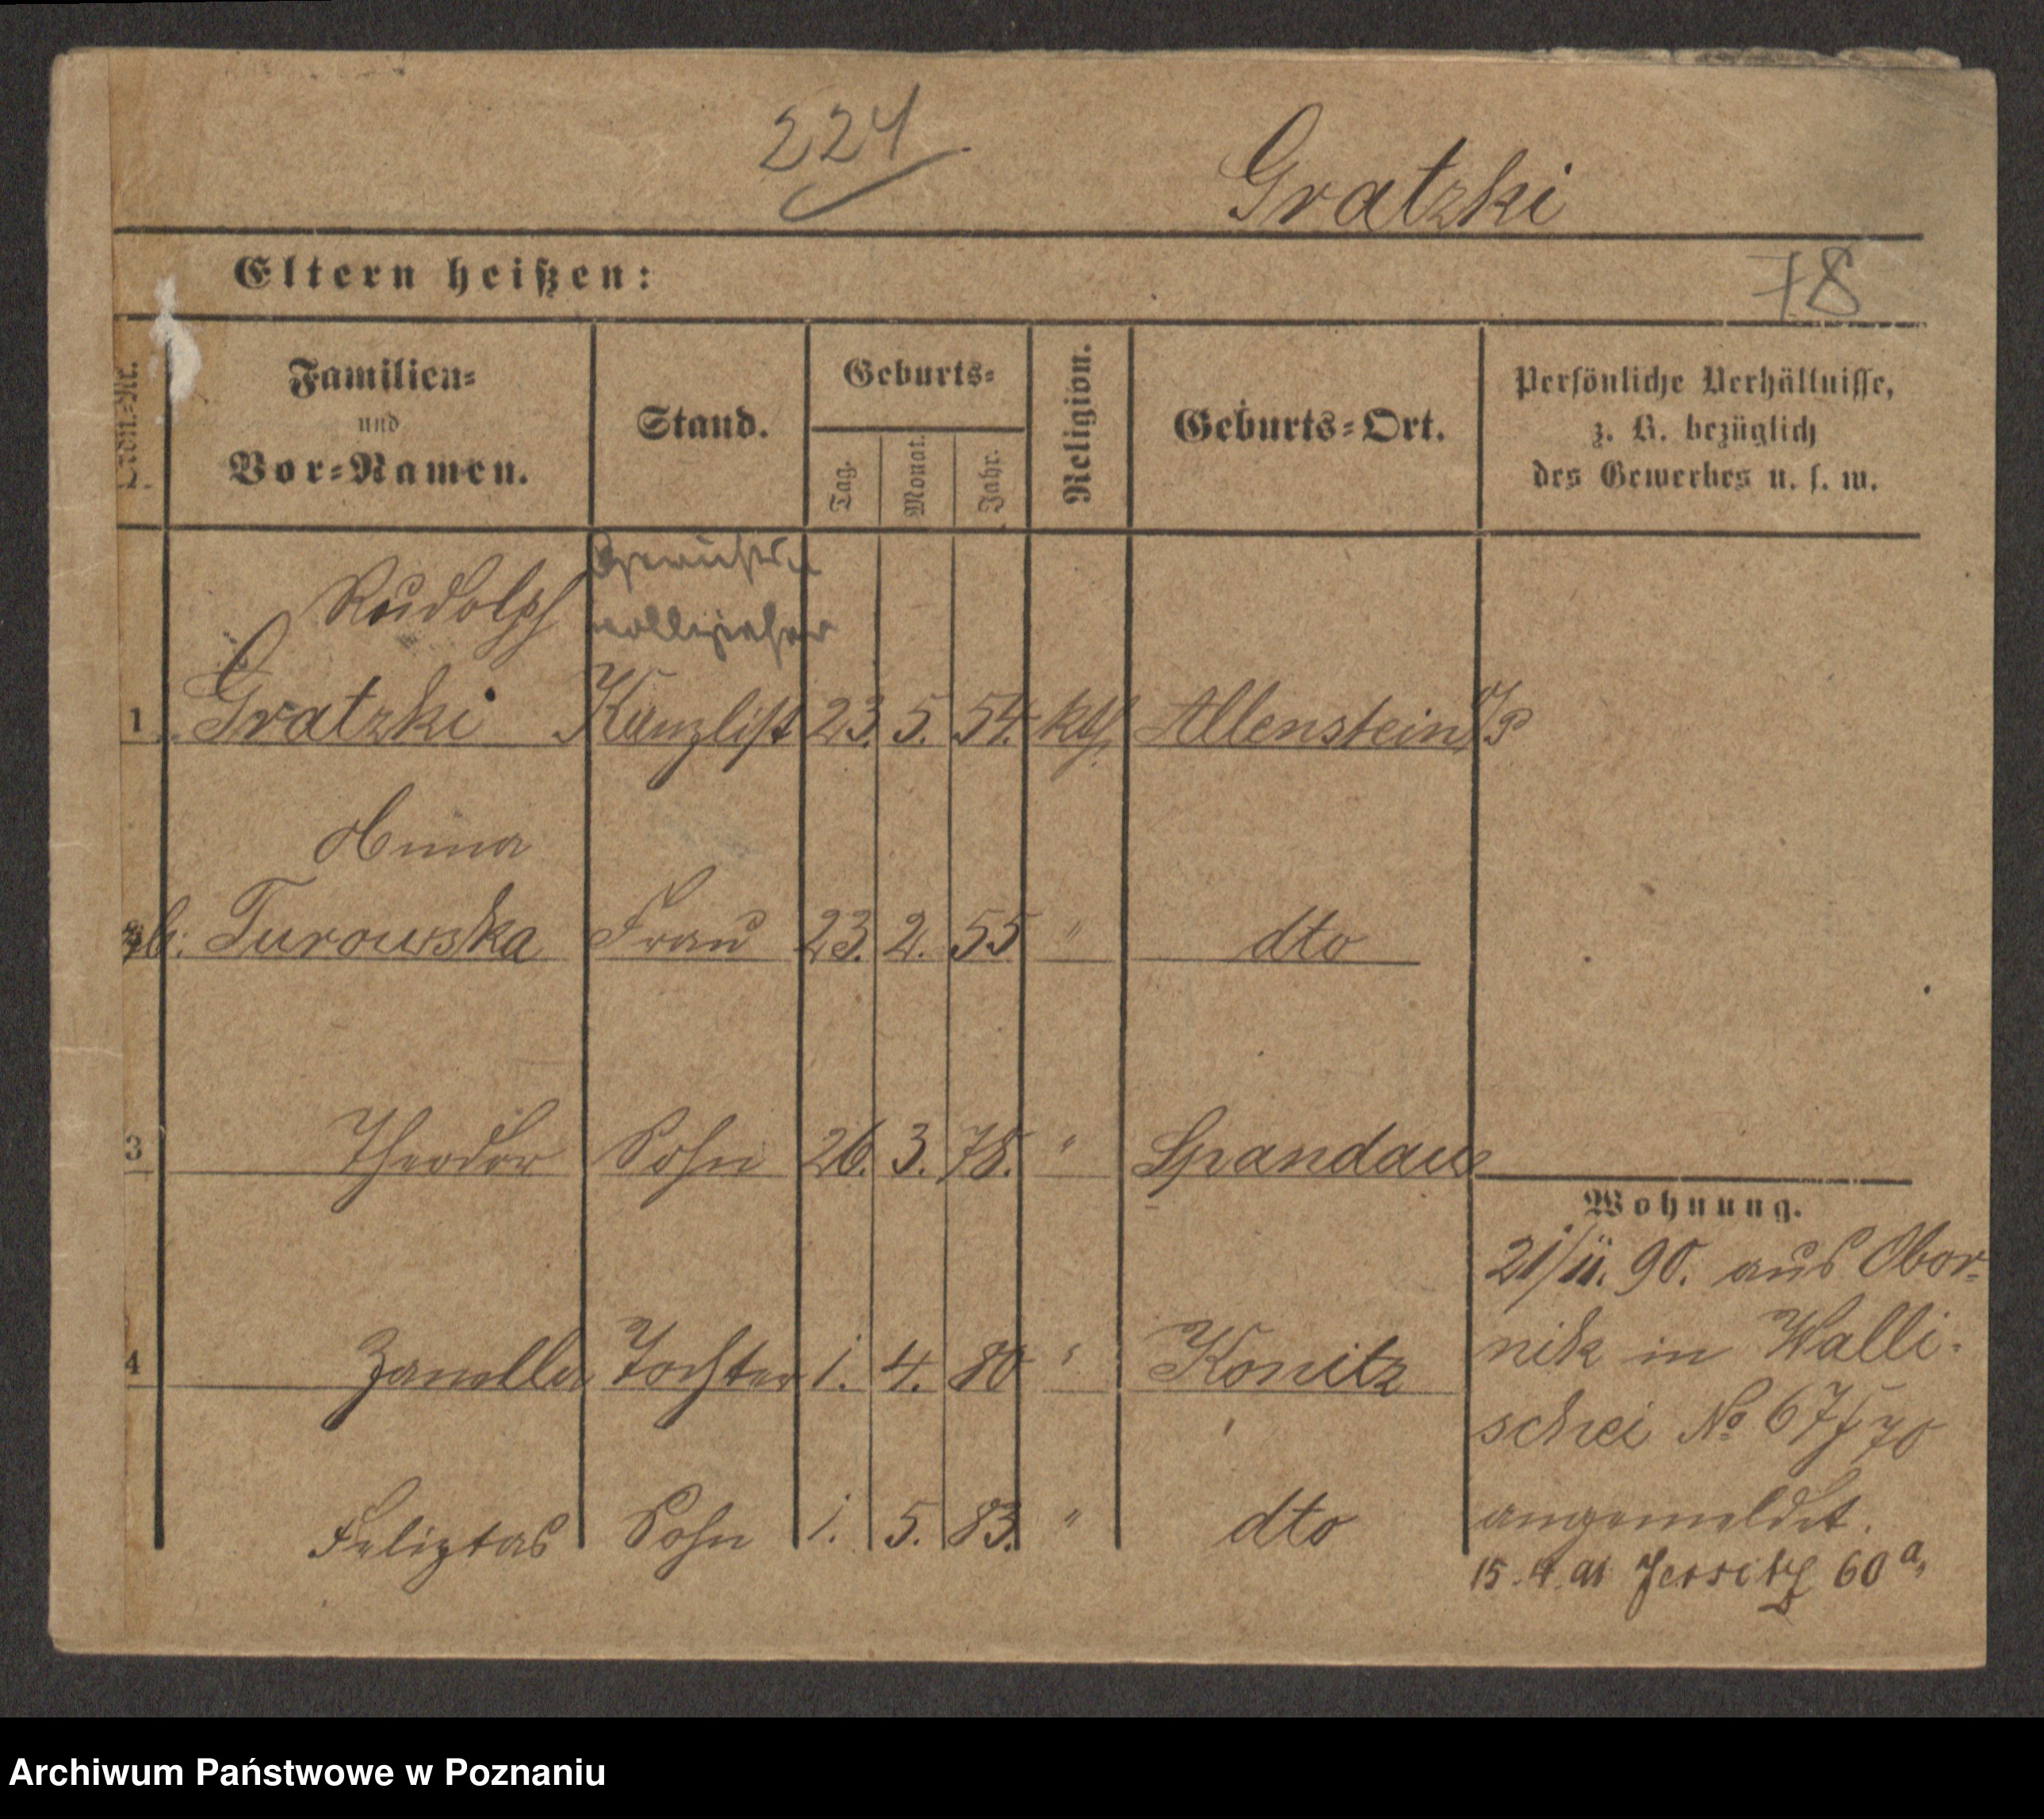 224
Gratzki
Eltern heißen:
78
Familien=
und
Vor=Namen.
Stand.
Geburts=
Tag.
Monat.
Jahr.
Religion.
Geburts=Ort.
Persönliche Verhältnisse,
z. B. bezüglich
des Gewerbes u. s. w.
Rudolph
vollzieher
1 Gratzki Kanzlist 23. 5. 54. kth. Allenstein O/P
Anna
geb. Turowska Frau 23. 2. 55 " dto
3 Theodor Sohn 26. 3. 78. " Spandau
Wohnung.
21/11. 90. aus Obor-
nik in Walli-
4 Tochter 1. 4. 80 " Konitz
schei No 67/70
Feliztas Sohn 1. 5. 83. " dto
angemeldet.
15. 4. 91 Jersitz 60a,
Archiwum Państwowe w Poznaniu